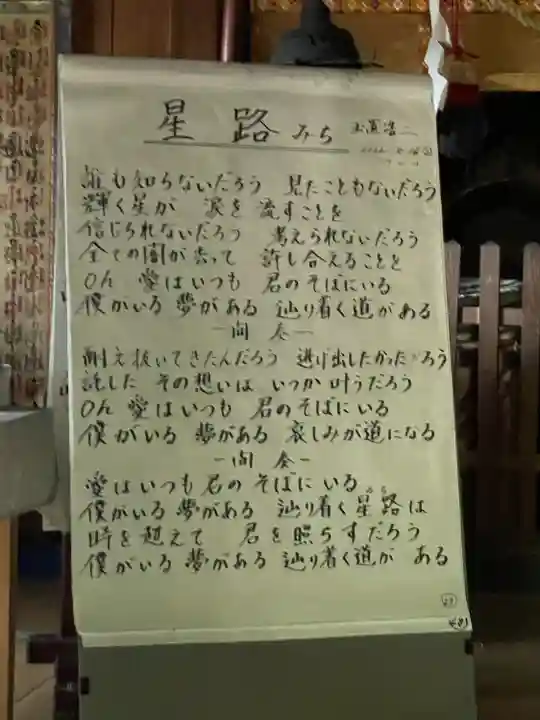 星路 みち 玉置浩二
誰も知らないだろう 見たこともないだろう
輝く星が 涙を流すことを
信じられないだろう 考えられないだろう
全ての闇が去って 許し合えることを
Oh 愛はいつも 君のそばにいる
僕がいる 夢がある 辿り着く道がある
ー間 奏ー
耐え抜いてきたんだろう 逃げ出したかっただろう
託した その想いは いつか叶うだろう
Oh 愛はいつも 君のそばにいる
僕がいる 夢がある 哀しみが道になる
ー間 奏ー
愛はいつも君のそばにいる
僕がいる 夢がある 辿り着く星路は
時を超えて 君を照らすだろう
僕がいる 夢がある 辿り着く道が ある